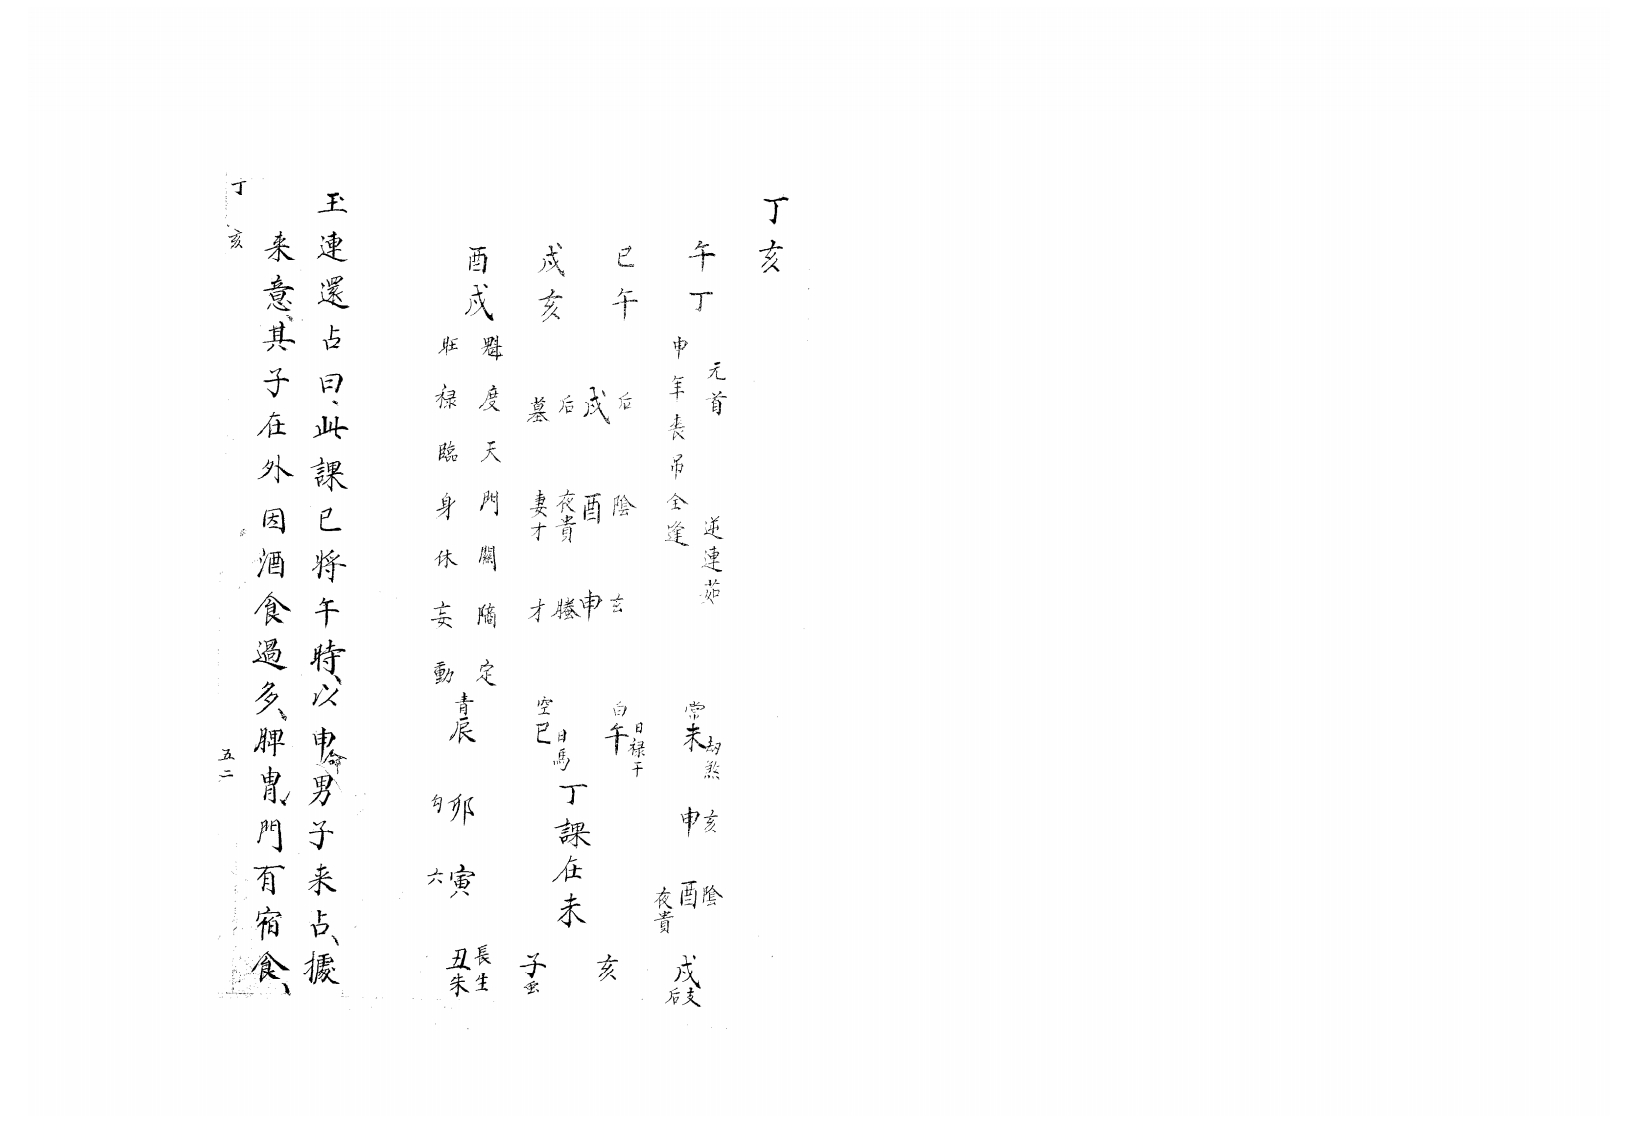 丁亥
午丁
巳午
戌亥
酉戌
元首 逆連茹
申年喪吊全逢
后 陰 玄
戌 酉 申
后 夜貴 螣
墓 妻才 才
魁度天門關隔定
旺禄臨身休妄動
常未劫煞 申亥 夜貴酉陰 戌支后
白午日禄干 亥
空巳日馬 子
丁課在未
青辰 勾卯 六寅 丑朱長生
玉連還占曰、此課巳将午時、以申命男子来占、據
来意、其子在外因酒食過多、脾胃、門有宿食、
丁亥
五二